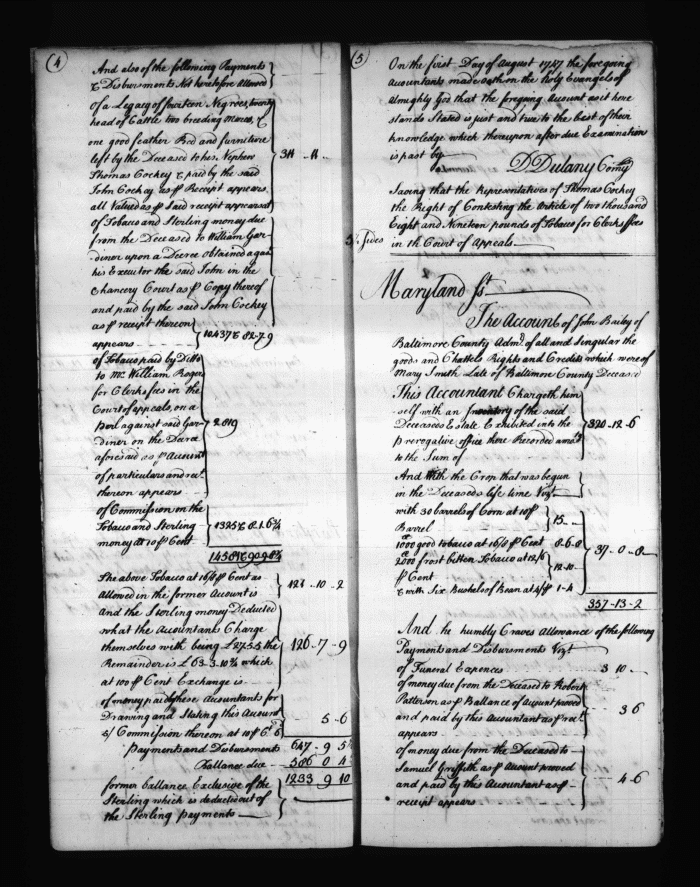 (4)
And also of the following Payments
& Disbursments Not heretofore Allowed
of a Legacy of fourteen Negroes, twenty
head of Cattle two breeding Mares, &
one good feather Bed and furniture
left by the Deceased to his Nephew
Thomas Cockey & paid by the said 311 .. 11 ..
John Cockey as ⅌ Receipt appears
all Valued as ⅌ Said receipt appears at
of Tobacco and Sterling money due
from the Deceased to William Gar-
diner upon a Decree obtained agat
his Executor the said John in the
Chancery Court as ⅌ Copy thereof
and paid by the said John Cockey
as ⅌ receipt thereon
appears - - - 10437 & 82-7-9
of Tobacco paid by Ditto
to Mr. William Rogers
for Clerks fees in the
Court of appeals, on a
against said Gar- 2819
diner on the Decree
aforesaid as ⅌ Account
of particulars and rect
thereon appears
of Commission on the
Tobacco and Sterling 1325
money at 10 ⅌ Cent

The above Tobacco at 16/8 ⅌ Cent as
Allowed in the former Account is 121 .. 10 .. 2
and the Sterling money Deducted
what the Accountants Charge
themselves with being £27.5.5 the 126 .. 7 .. 9
Remainder is £63..3..10¾ which
at 100 ⅌ Cent Exchange is
of money paid these Accountants for
Drawing and Stating this Account 5 .. 6
Commission thereon at 10 ⅌ Ct
Payments and Disbursments 647 .. 9 5
Ballance due -- 586 0 4
1233 9 10
former ballance Exclusive of the
Sterling which is deduct out of
the Sterling Payments
(5)
On the first Day of August 1747 the foregoing
Accountants made oath on the Holy Evangels of
Almighty God that the foregoing Account as it here
stands Stated is just and true to the best of their
knowledge which thereupon after due Examination
is past by
D Dulany Comy
Saving that the Representatives of Thomas Cockey
the Right of Contesting the Article of two thousand
Eight and Nineteen pounds of Tobacco for Clerks ffees
in the Court of Appeals
Sides
Maryland Sst
The Account of John Bailey of
Baltimore County Admr. of all and Singular the
goods and Chattels Rights and Credits which were of
Mary Smith Late of Baltimore County Deceased
This Accountant Chargeth him
self with an Inventory of the said
Deceaseds Estate Exhibited into the 320 .. 12 .. 6
Prerogative office there Recorded amot.
to the Sum of
And With the Crop that was begun
in the Deceaseds life time Vizt
with 30 barrels of Corn at 10/ ⅌ 15 ..
Barrel
1000 good tobacco at 16/8 ⅌ Cent 8-6-8
2000 frost bitten Tobacco at 12/6 12-10- 37 .. 0 .. 8
⅌ Cent
& with Six Bushels of Bean at ⅌ 1-4
357-13-2
And he humbly Craves Allowance of the following
Payments and Disbursments Vizt
of Funeral Expences 3 10 -
of money due from the Deceased to Robert
Patterson as ⅌ Ballance of Account proved 3 6
and paid by this Accountant as ⅌ rect
appears
of money due from the Deceased to
Samuel Griffith as ⅌ Account proved
and paid by this Accountant as ⅌ 4-6
receipt appears